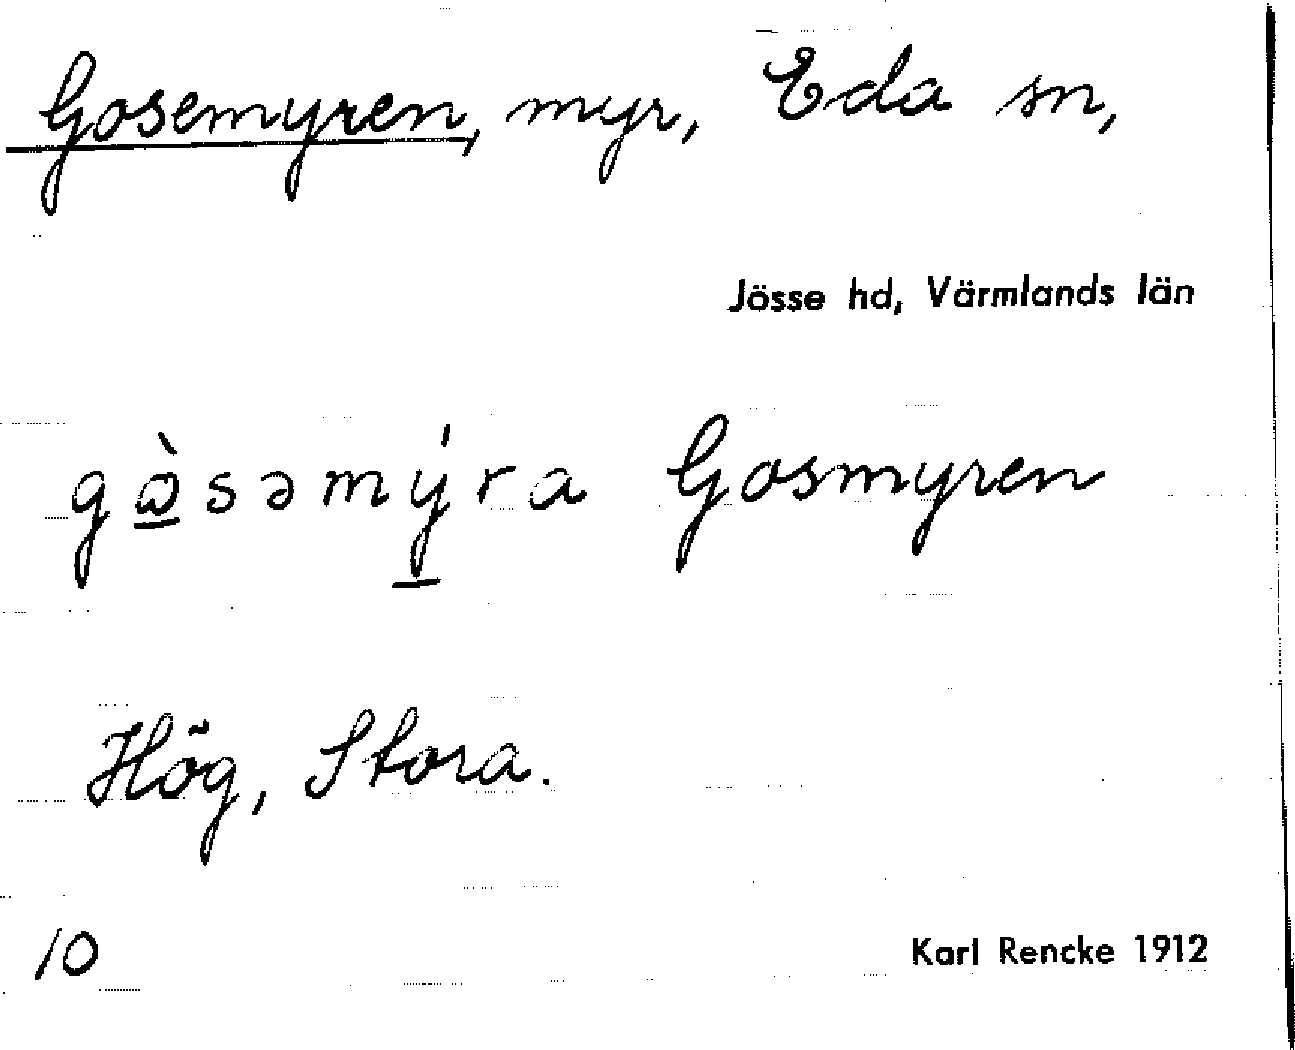 Gosemyren, myr, Eda sn,
Jösse hd, Värmlands län
gὼ̲səmý̲ra Gosmyren
Hög, Stora.
10
Karl Rencke 1912